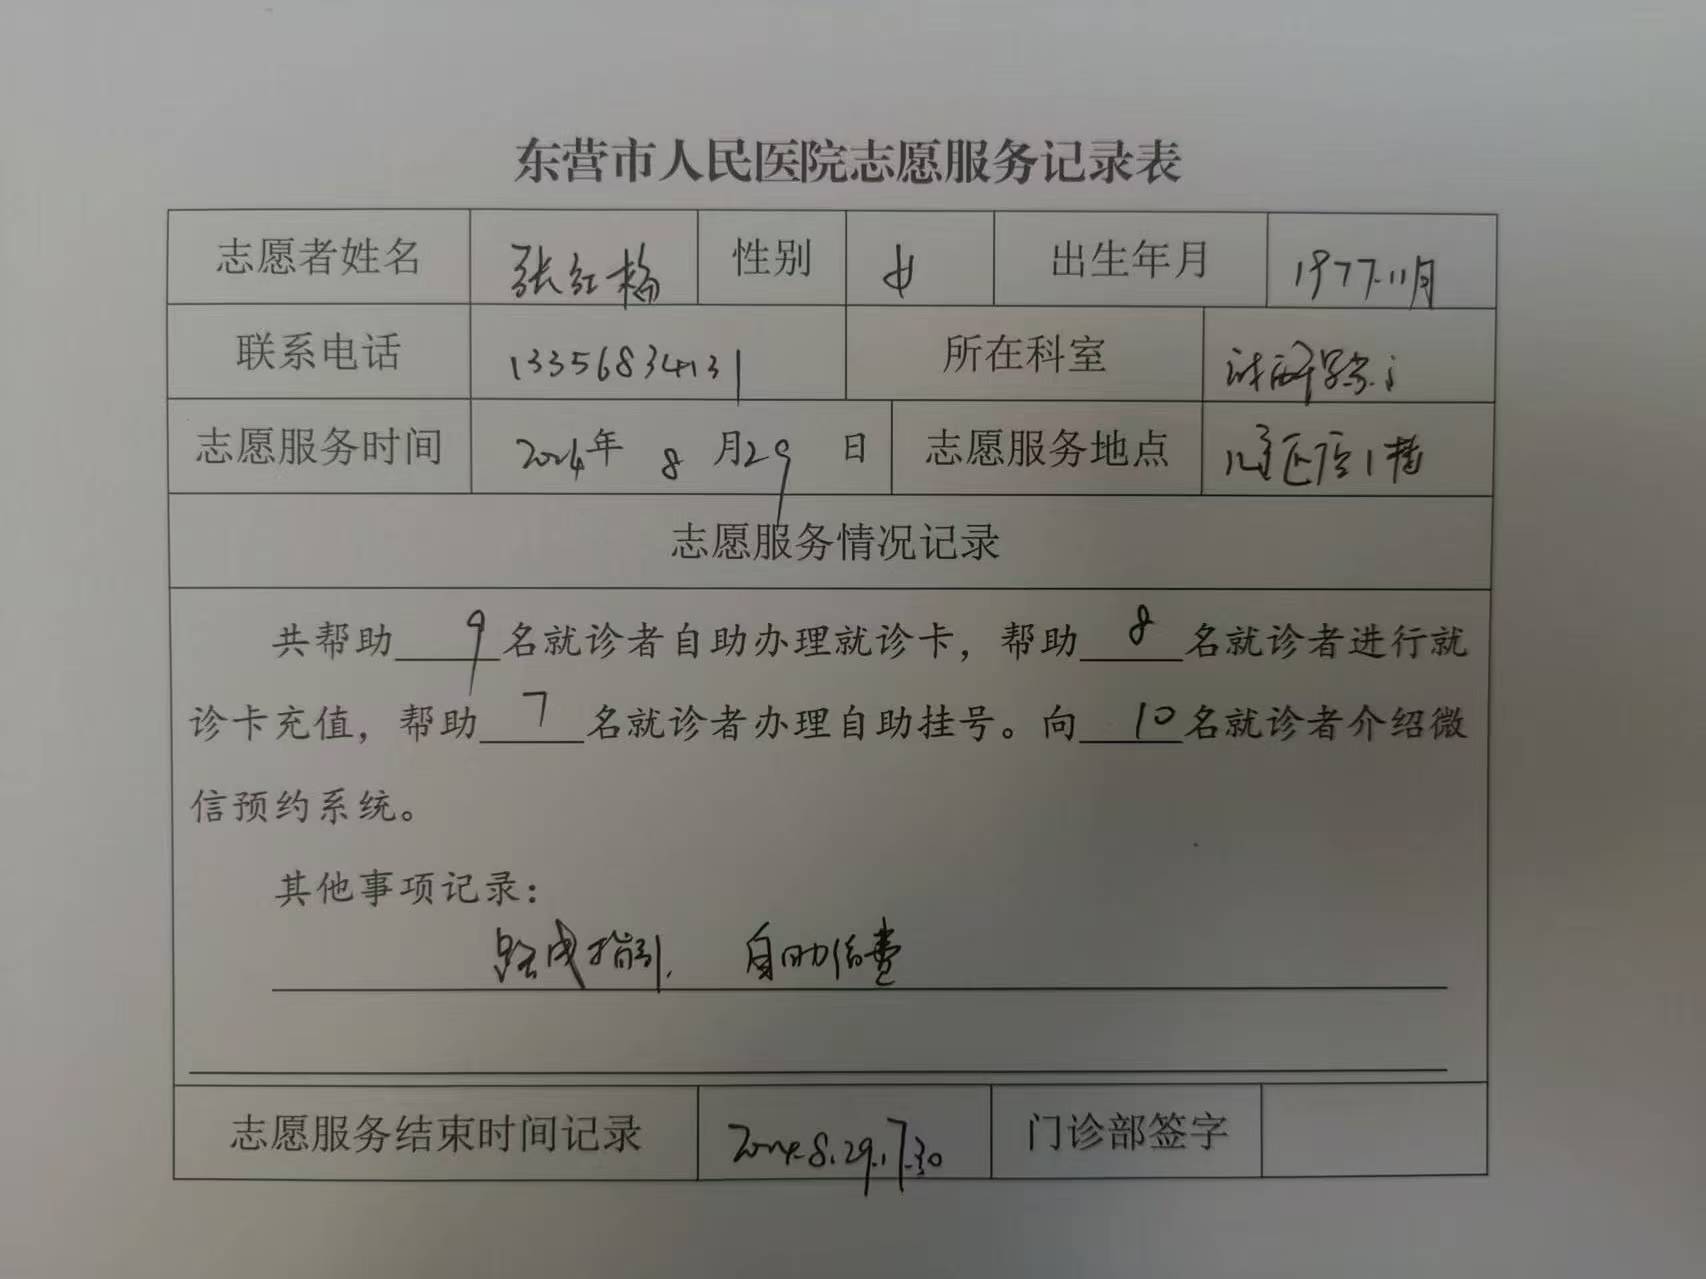 东营市人民医院志愿服务记录表
志愿者姓名 张红梅 性别 女 出生年月 1977.11月
联系电话 13356834131 所在科室
志愿服务时间 2024年 8 月29 日 志愿服务地点 儿童医院1楼
志愿服务情况记录
共帮助 9 名就诊者自助办理就诊卡，帮助 8 名就诊者进行就
诊卡充值，帮助 7 名就诊者办理自助挂号。向 10 名就诊者介绍微
信预约系统。
其他事项记录：
指引. 自助缴费
志愿服务结束时间记录 2024.8.29.17.30 门诊部签字